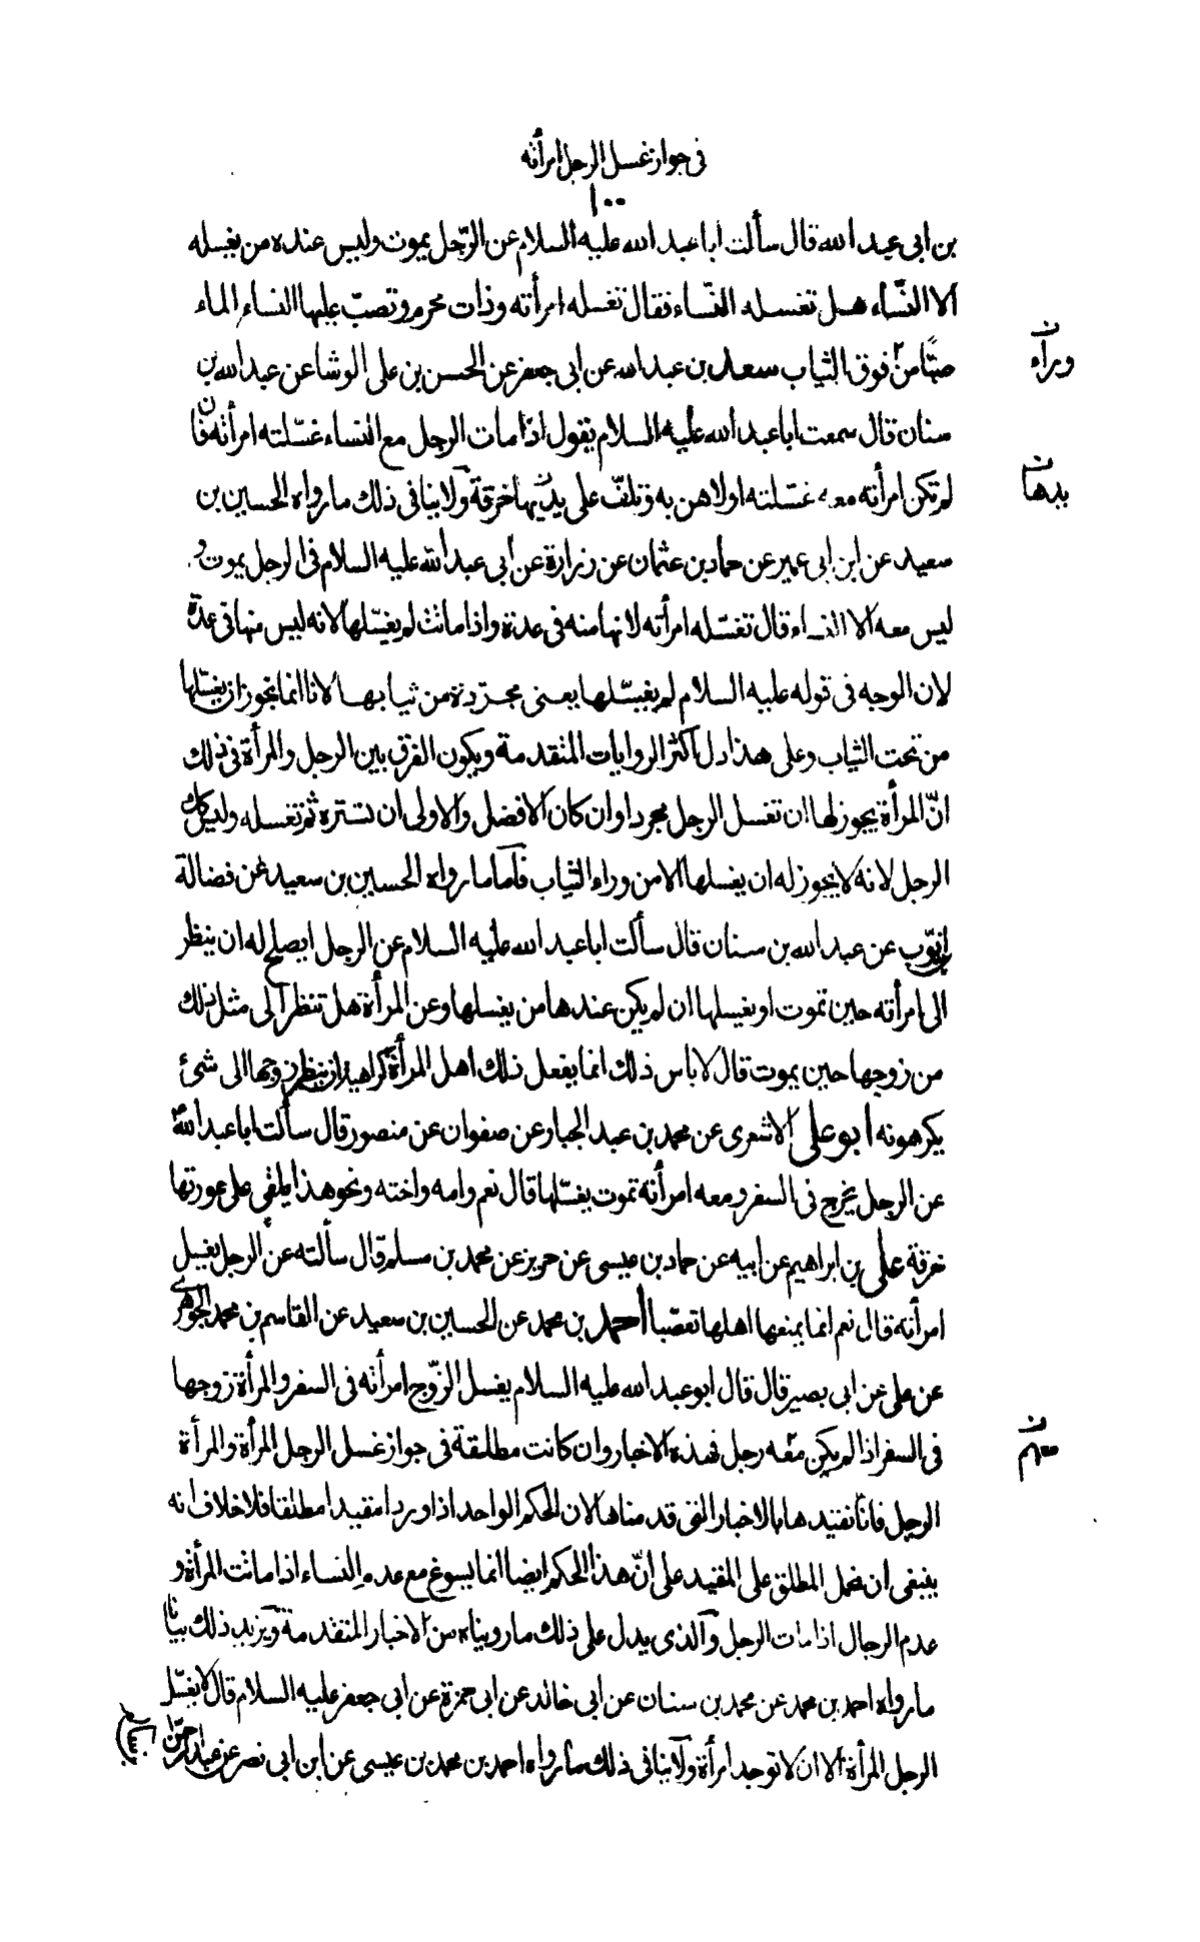 في جواز غسل الرجل امرأته
١٠٠
بن ابى عبد الله قال سألت ابا عبد الله عليه السلام عن الرّجل يموت وليس عنده من يغسله
الا النّساء هل تغسله النّساء فقال تغسله امرأته وذات محرم وتصبّ عليها النساء الماء
صبّاً من فوق الثياب سعد بن عبد الله عن ابى جعفر عن الحسن بن على الوشا عن عبد الله بن
سنان قال سمعت ابا عبد الله عليه السلام يقول اذا مات الرجل مع النساء غسّلته امرأته فان
لم تكن امرأته معه غسّلته اولاهن به وتلفّ على يديها خرقة ولا ينافى ذلك ما رواه الحسين بن
سعيد عن ابن ابى عمير عن حماد بن عثمان عن زرارة عن ابى عبد الله عليه السلام فى الرجل يموت و
ليس معه الا النساء قال تغسّله امرأته لانها منه فى عدة واذا ماتت لم يغسّلها لانه ليس منها فى عدة
لان الوجه فى قوله عليه السلام لم يغسّلها يعنى مجرّدة من ثيابها لانا انما يجوز ان يغسّلها
من تحت الثياب وعلى هذا دل اكثر الروايات المتقدمة ويكون الفرق بين الرجل والمرأة فى ذلك
انّ المرأة يجوز لها ان تغسل الرجل مجردا وان كان الافضل والاولى ان تستره ثم تغسله وليس كك
الرجل لانه لا يجوز له ان يغسلها الا من وراء الثياب فأما ما رواه الحسين بن سعيد عن فضالة
بن ايّوب عن عبد الله بن سنان قال سألت ابا عبد الله عليه السلام عن الرجل ايصلح له ان ينظر
الى امرأته حين تموت او يغسلها ان لم يكن عندها من يغسلها وعن المرأة هل تنظر الى مثل ذلك
من زوجها حين يموت قال لا باس ذلك انما يفعل ذلك اهل المرأة كراهية ان ينظر زوجها الى شئ
يكرهونه ابو على الاشعرى عن محمد بن عبد الجبار عن صفوان عن منصور قال سألت ابا عبد الله ع
عن الرجل يخرج فى السفر ومعه امرأته تموت يغسّلها قال نعم وامه واخته ونحو هذا يلقى على عورتها
خرقة على بن ابراهيم عن ابيه عن حماد بن عيسى عن حريز عن محمد بن مسلم قال سألته عن الرجل يغسل
امرأته قال نعم انما يمنعها اهلها تعصّبا احمد بن محمد عن الحسين بن سعيد عن القاسم بن محمد الجوهرى
عن على عن ابى بصير قال قال ابو عبد الله عليه السلام يغسل الزّوج امرأته فى السفر والمرأة زوجها
فى السفر اذا لم يكن معه رجل فهذه الاخبار وان كانت مطلقة فى جواز غسل الرجل المرأة والمرأة
الرجل فانّا نقيّدها بالاخبار التى قدمناها لان الحكم الواحد اذا ورد مقيدا مطلقا فلا خلاف انه
ينبغى ان يحمل المطلق على المقيد على انّ هذا الحكم ايضا انما يسوغ مع عدم النساء اذا ماتت المرأة و
عدم الرجال اذا مات الرجل والذى يدل على ذلك ما رويناه من الاخبار المتقدمة ويزيد ذلك بيانا
ما رواه احمد بن محمد عن محمد بن سنان عن ابى خالد عن ابى حمزة عن ابى جعفر عليه السلام قال لا يغسّل
الرجل المرأة الا ان لا توجد امرأة ولا ينافى ذلك ما رواه احمد بن محمد بن عيسى عن ابن ابى نصر عن عبد الرحمن
وراء ن
يدها ن
معهم ن
بن سالم